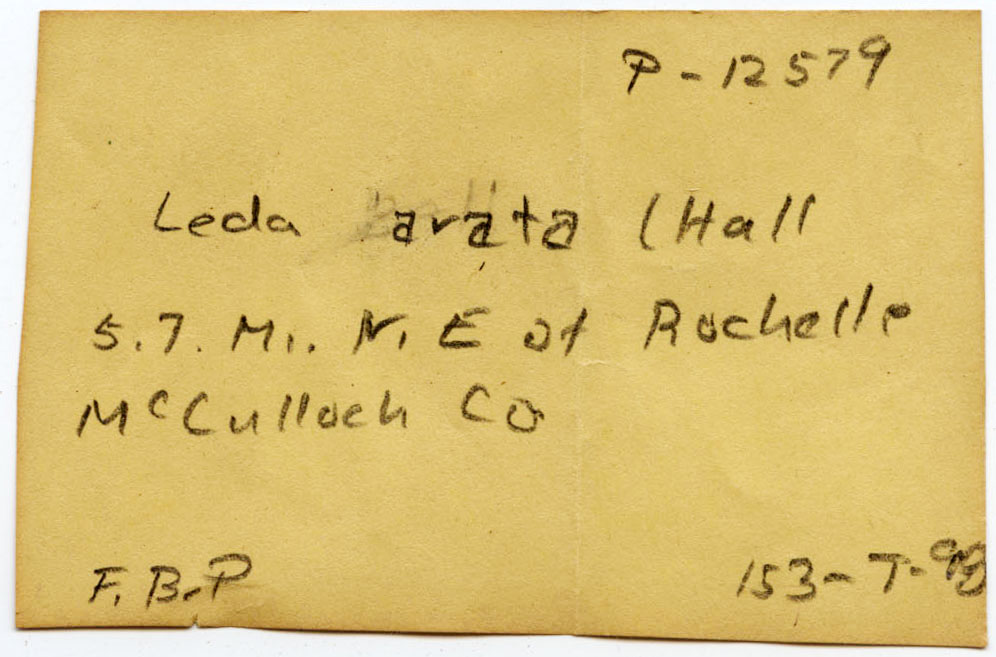 P-12579
Leda arata (Hall
5.7. Mi. N. E of Rochelle
McCulloch Co
F. B. P
153-T-